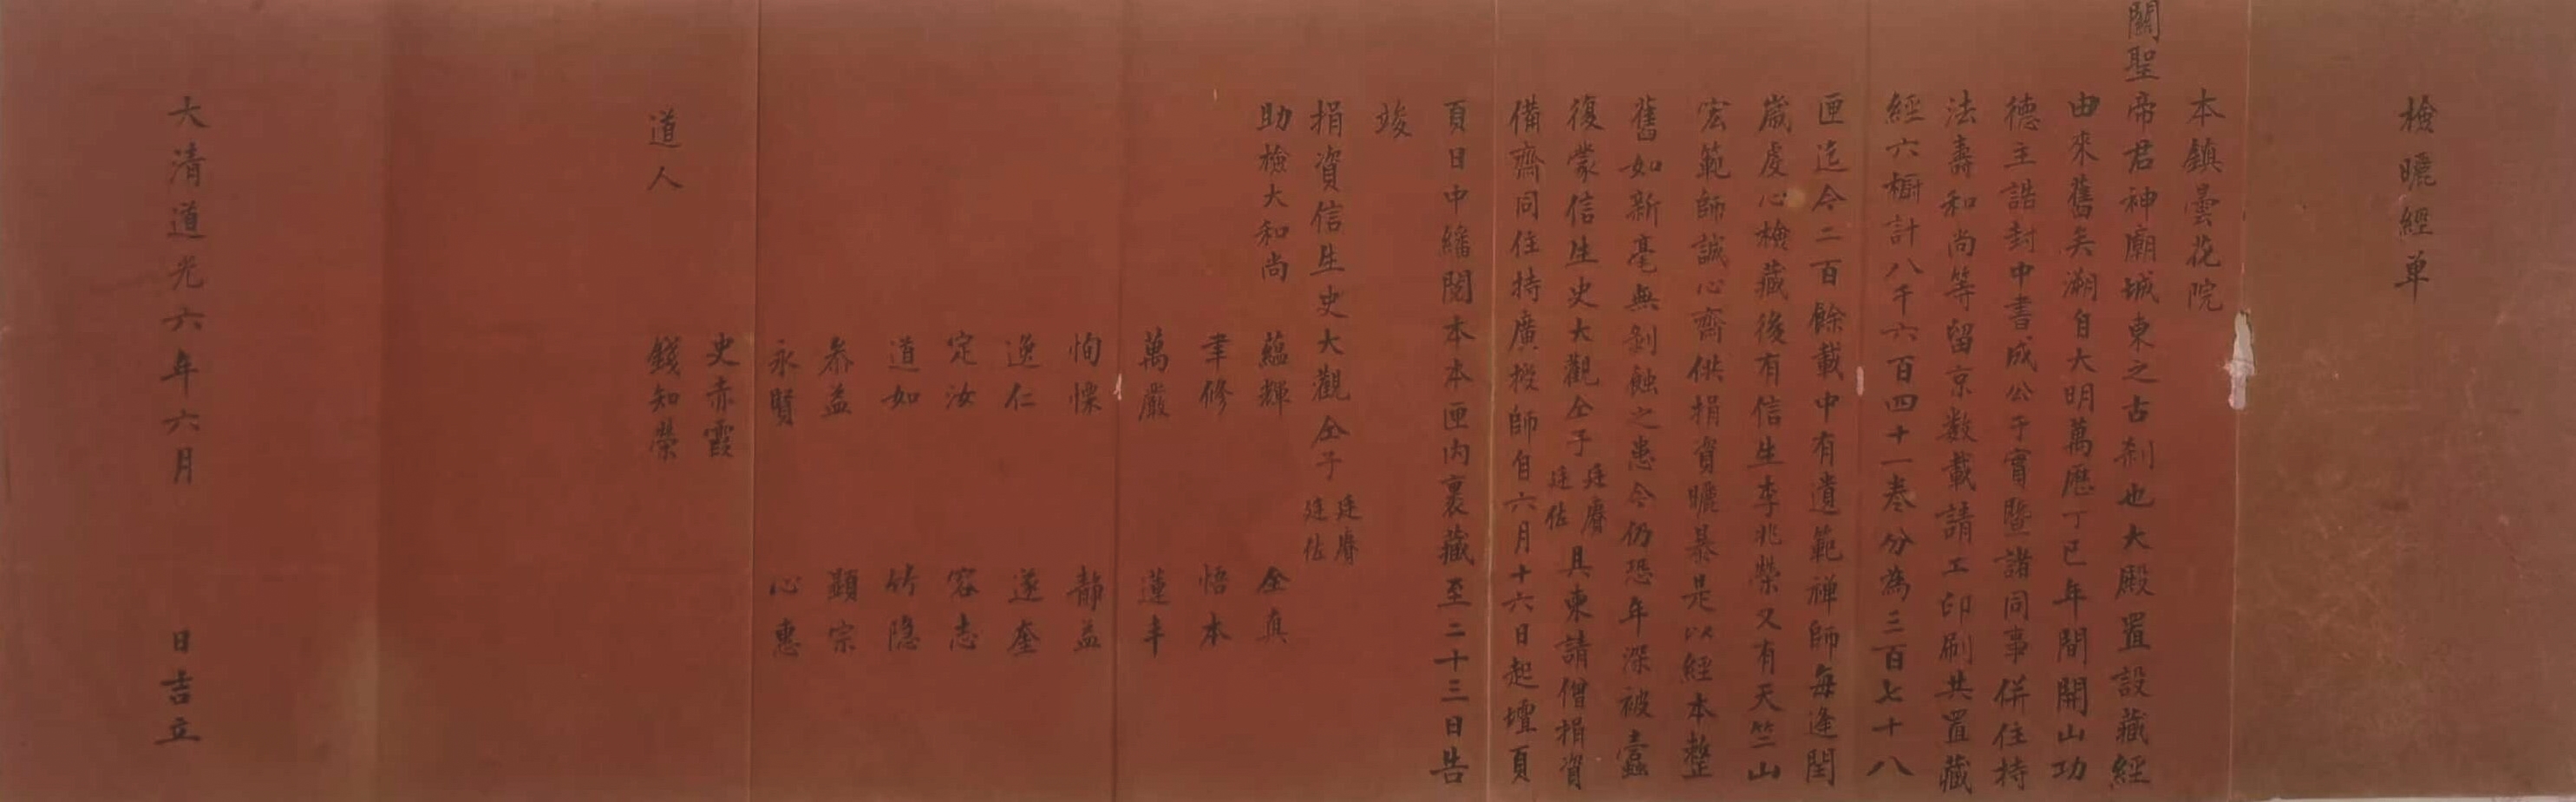 檢曬經单
本鎮曇花院
關聖帝君神廟城東之古刹也大殿置設藏經
由來舊矣溯自大明萬歷丁巳年間開山功
德主誥封中書成公于實暨諸同事併住持
法壽和尚等留京数載請工印刷共置藏
經六橱計八千六百四十一卷分為三百七十八
匣迄今二百餘載中有遺範禅師每逢閏
嵗虔心檢藏後有信生李兆榮又有天竺山
宏範師誠心齋供捐資曬暴是以經本整
舊如新毫無剝蝕之患今仍恐年深被蠹
復蒙信生史大觀仝子廷賡廷佐具柬請僧捐資
備齋同住持廣師自六月十六日起壇頁
頁日中繙閱本本匣内裹藏至二十三日告
竣
捐資信生史大觀仝子廷賡廷佐
助檢大和尚 蘊輝 全真
聿修 悟本
萬嚴 蓮丰
恂慄 静益
逸仁 遂奎
定汝 容志
道如 竹隱
恭益 顕宗
永賢 心惠
史赤霞
道人 錢知榮
大清道光六年六月 日吉立